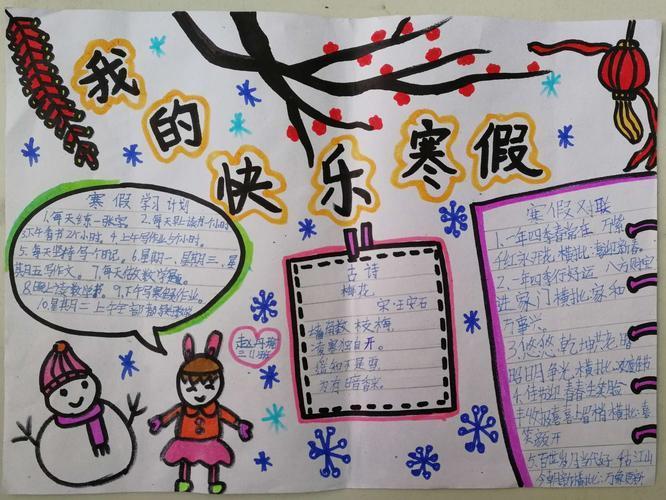 我的快乐寒假
寒假学习计划
1.每天练一张字。2.每天早上读书1个小时
3.下午看书2个小时。4.上午写作业5个小时。
5.每天坚持写个日记。6.星期一、星期三、星
期五写作文。7.每天做数学题。
8.晚上读数学书。9.下午写寒假作业。
10.星期二上午
古诗
梅花
宋·王安石
墙角数枝梅，
凌寒独自开。
遥知不是雪，
为有暗香来。
三、11班
寒假对联
1.一年四季春常在 万紫
千红永开花 横批:喜迎新春
2.一年四季行好运 八方财宝
进家门 横批:家和
万事兴。
3.悠悠乾坤共老
昭昭日月争光 横批:欢度佳节
4.佳节迎春春生笑脸
丰收报喜喜上眉梢 横批:喜
笑颜开